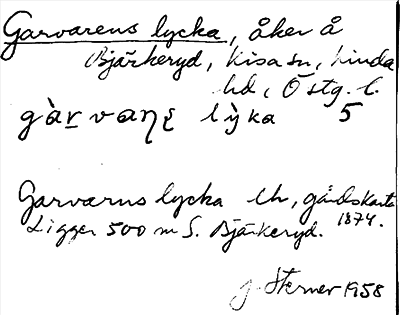 Garvarens lycka, åker å
Bjärkeryd, Kisa sn, Kinda
hd, Östg. l.
gàr vaņę lỳka 5
Garvarns lycka Ch, gårdskarta
1874.
Ligger 500 m S. Bjärkeryd.
J. Sterner 1958